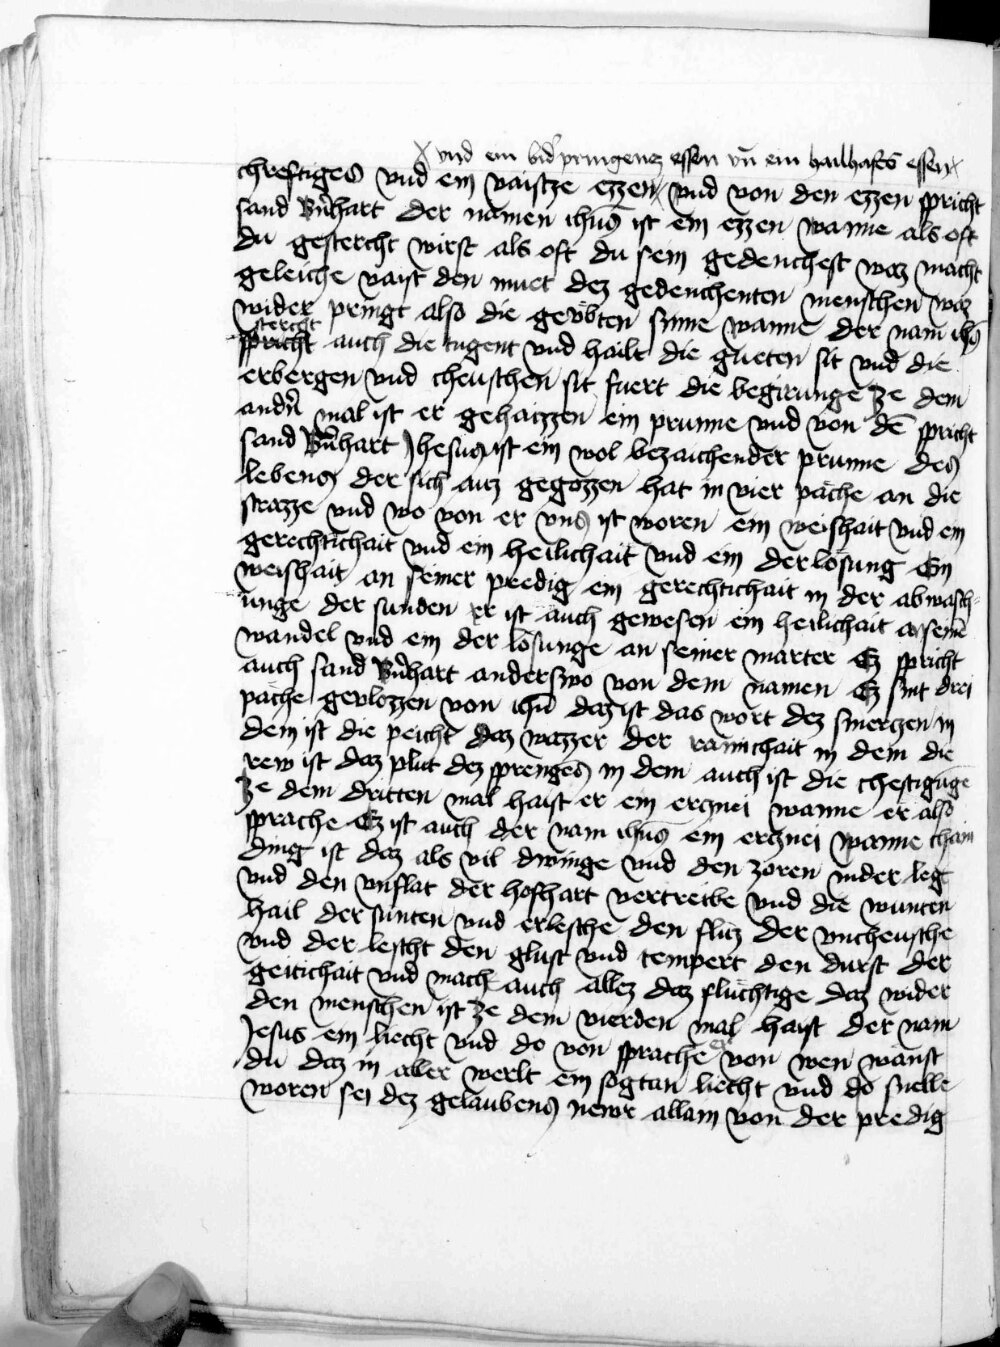 x vnd ein wid' pringentz essen vn̄ ein hailhafts essen x
chreftiges vnd ein vaistze ezzen x vnd von den ezzen spricht
sand Bn̄hart der namen ihūs ist ein ezzen wanne als oft
du gestercht wirst als oft du sein gedenchest waz macht
geleiche vaist den muet dez gedenchenten menschen waz
wider pringt also die gev̈bten sinne wanne der nam ihūs
stercht
spricht auch die tugent vnd hailt die gueten sit vnd die
erbergen vnd cheuschen sit fuert die begirunge ze dem
andn̄ mal ist er gehaizzen ein prunne vnd von dē spricht
sand Bn̄hart Jhesus ist ein wol bezaichender prunne des
lebens der sich auz gegozzen hat in vier päche an die
strazze vnd wo von er vns ist woren ein weishait vnd ein
gerechtichait vnd ein heilichait vnd ein derlösung Ein
weishait an seiner predig ein gerechtichait in der abwasch=
unge der sunden er ist auch gewesen ein heilichait an seinē
wandel vnd ein der lösunge an seiner marter Ez spricht
auch sand Bn̄hart anderswo von dem namen Ez sint drei
päche gevlozzen von ihū daz ist das wort dez smerczen in
dem ist die peicht daz wazzer der rainichait in dem die
rew ist daz plut dez sprenges in dem auch ist die chestigūge
ze dem dritten mal haist er ein erznei wanne er also
sprache Ez ist auch der nam ihūs ein erznei wanne chain
ding ist daz als vil dwinge vnd den zoren nider leg
vnd den vnflat der hofhart vertreibe vnd die wunten
hail der sunten vnd erlesche den fluz der vncheusche
vnd der lescht den glust vnd tempert den durst der
geitichait vnd mach auch allez daz fluchtige daz wider
den menschen ist ze dem vierden mal haist der nam
Jesus ein liecht vnd do von sprache er von wen wanst
du daz in aller werlt ein sogtan liecht vnd do snelle
woren sei dez gelaubens newr allain von der predig